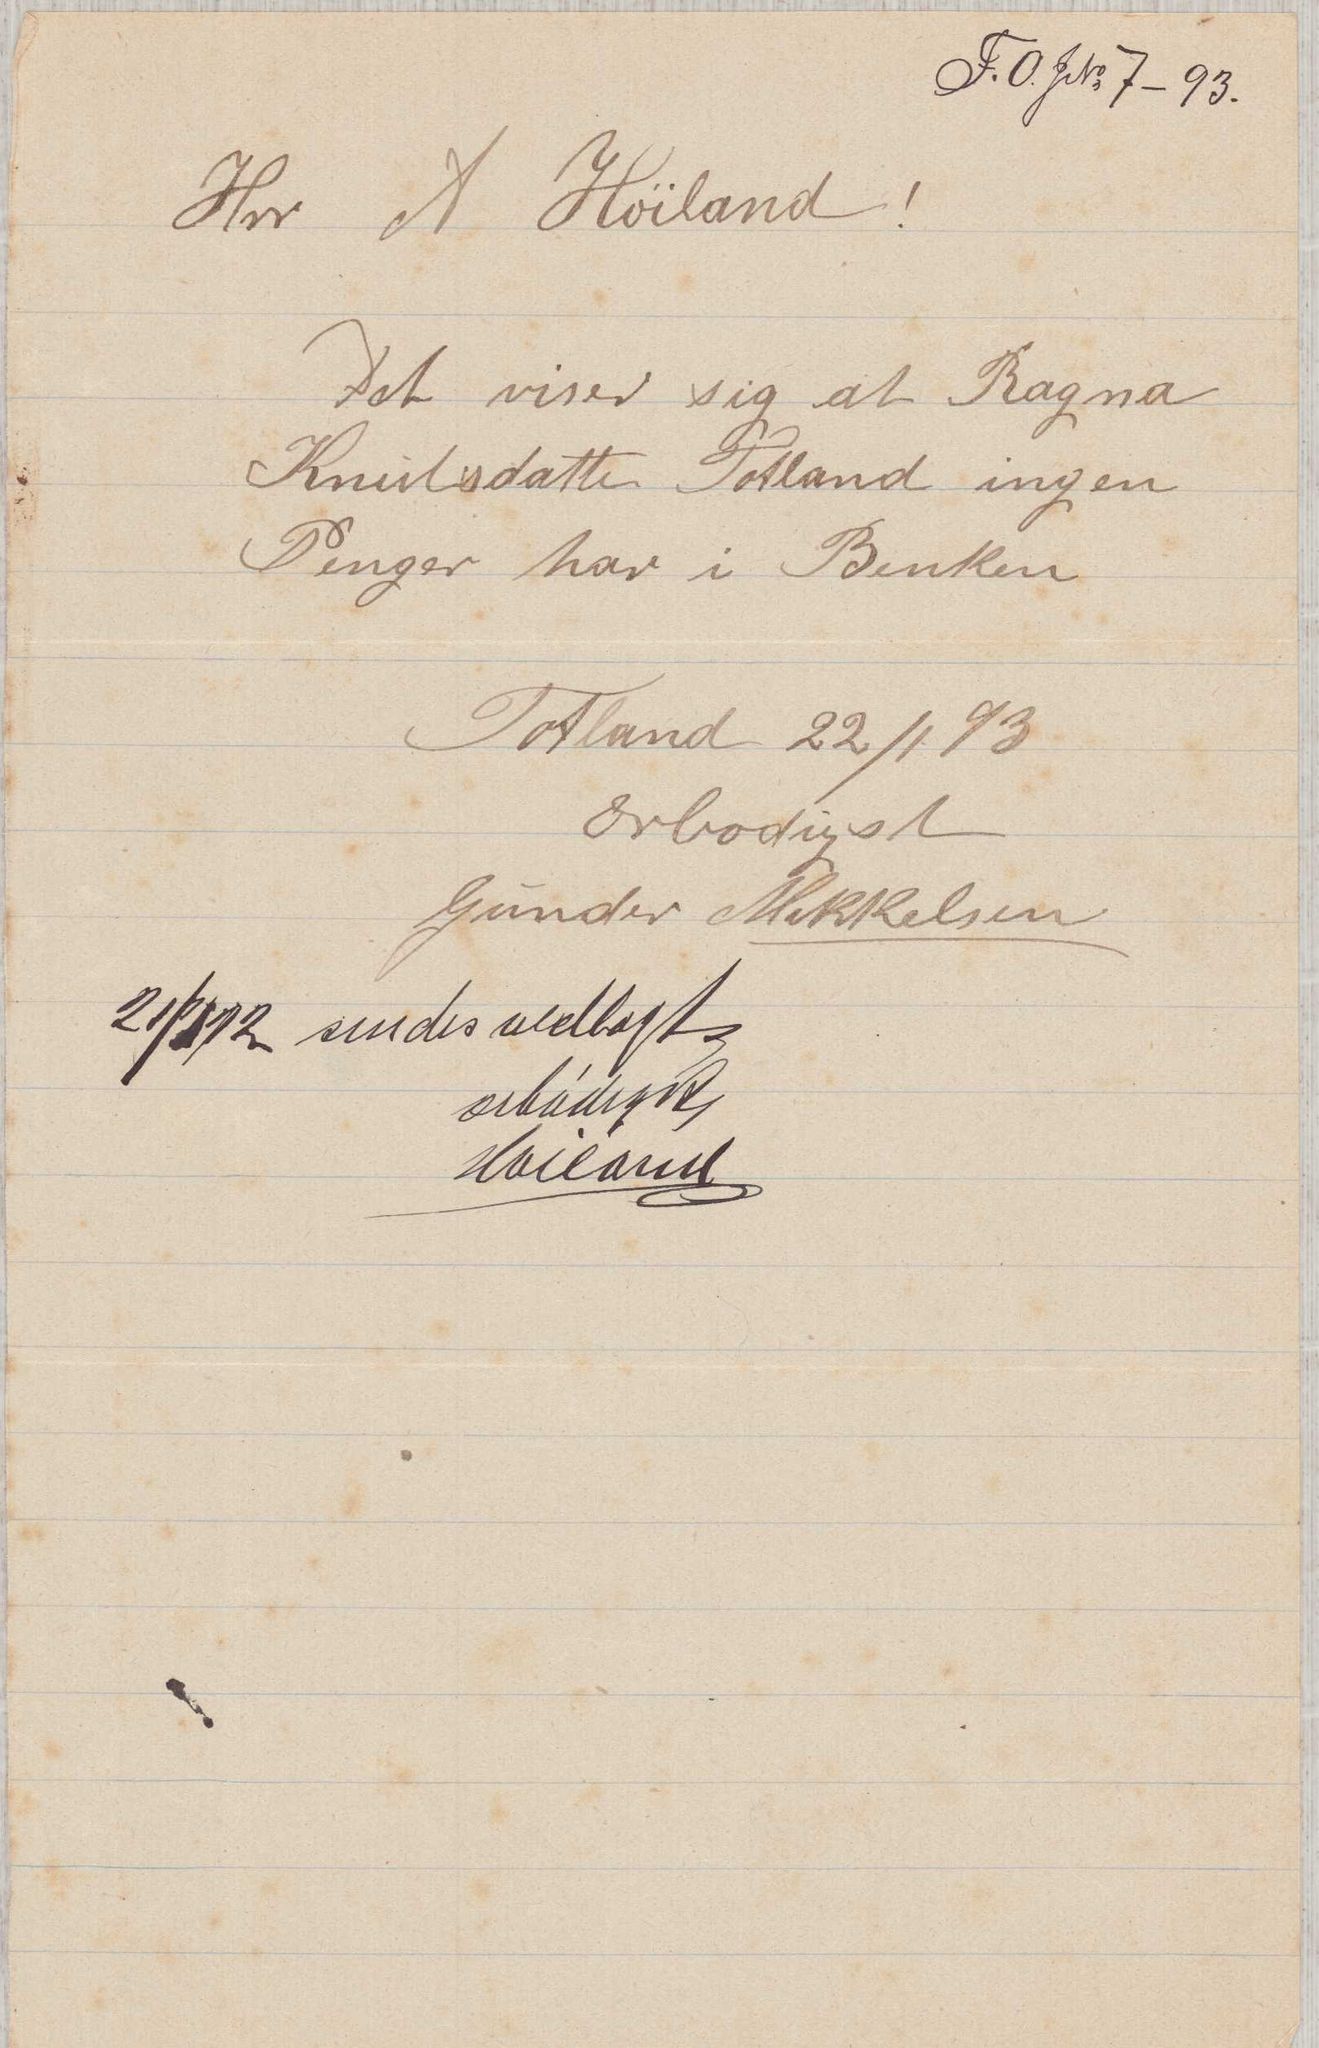 F. O. J No 7 – 93.
Hrr A Höiland!
Det viser sig at Ragna
Knudsdatte Totland ingen
Penger har i Banken
Totland 22/1 93
Erbodigst
Gunder Mikkelsen
sendes vedlagt
erbödigst,
Höiland